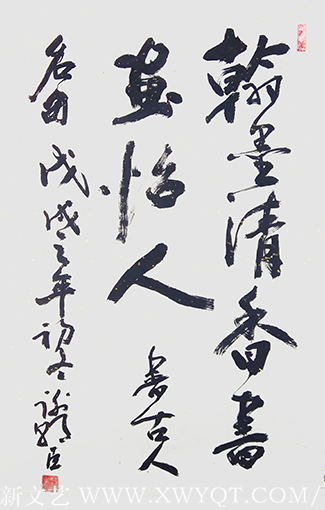 翰墨清香書
畫怡人 書古人
名句 戊戌之年初冬 臣
新文艺 WWW.XWYQT.COM/